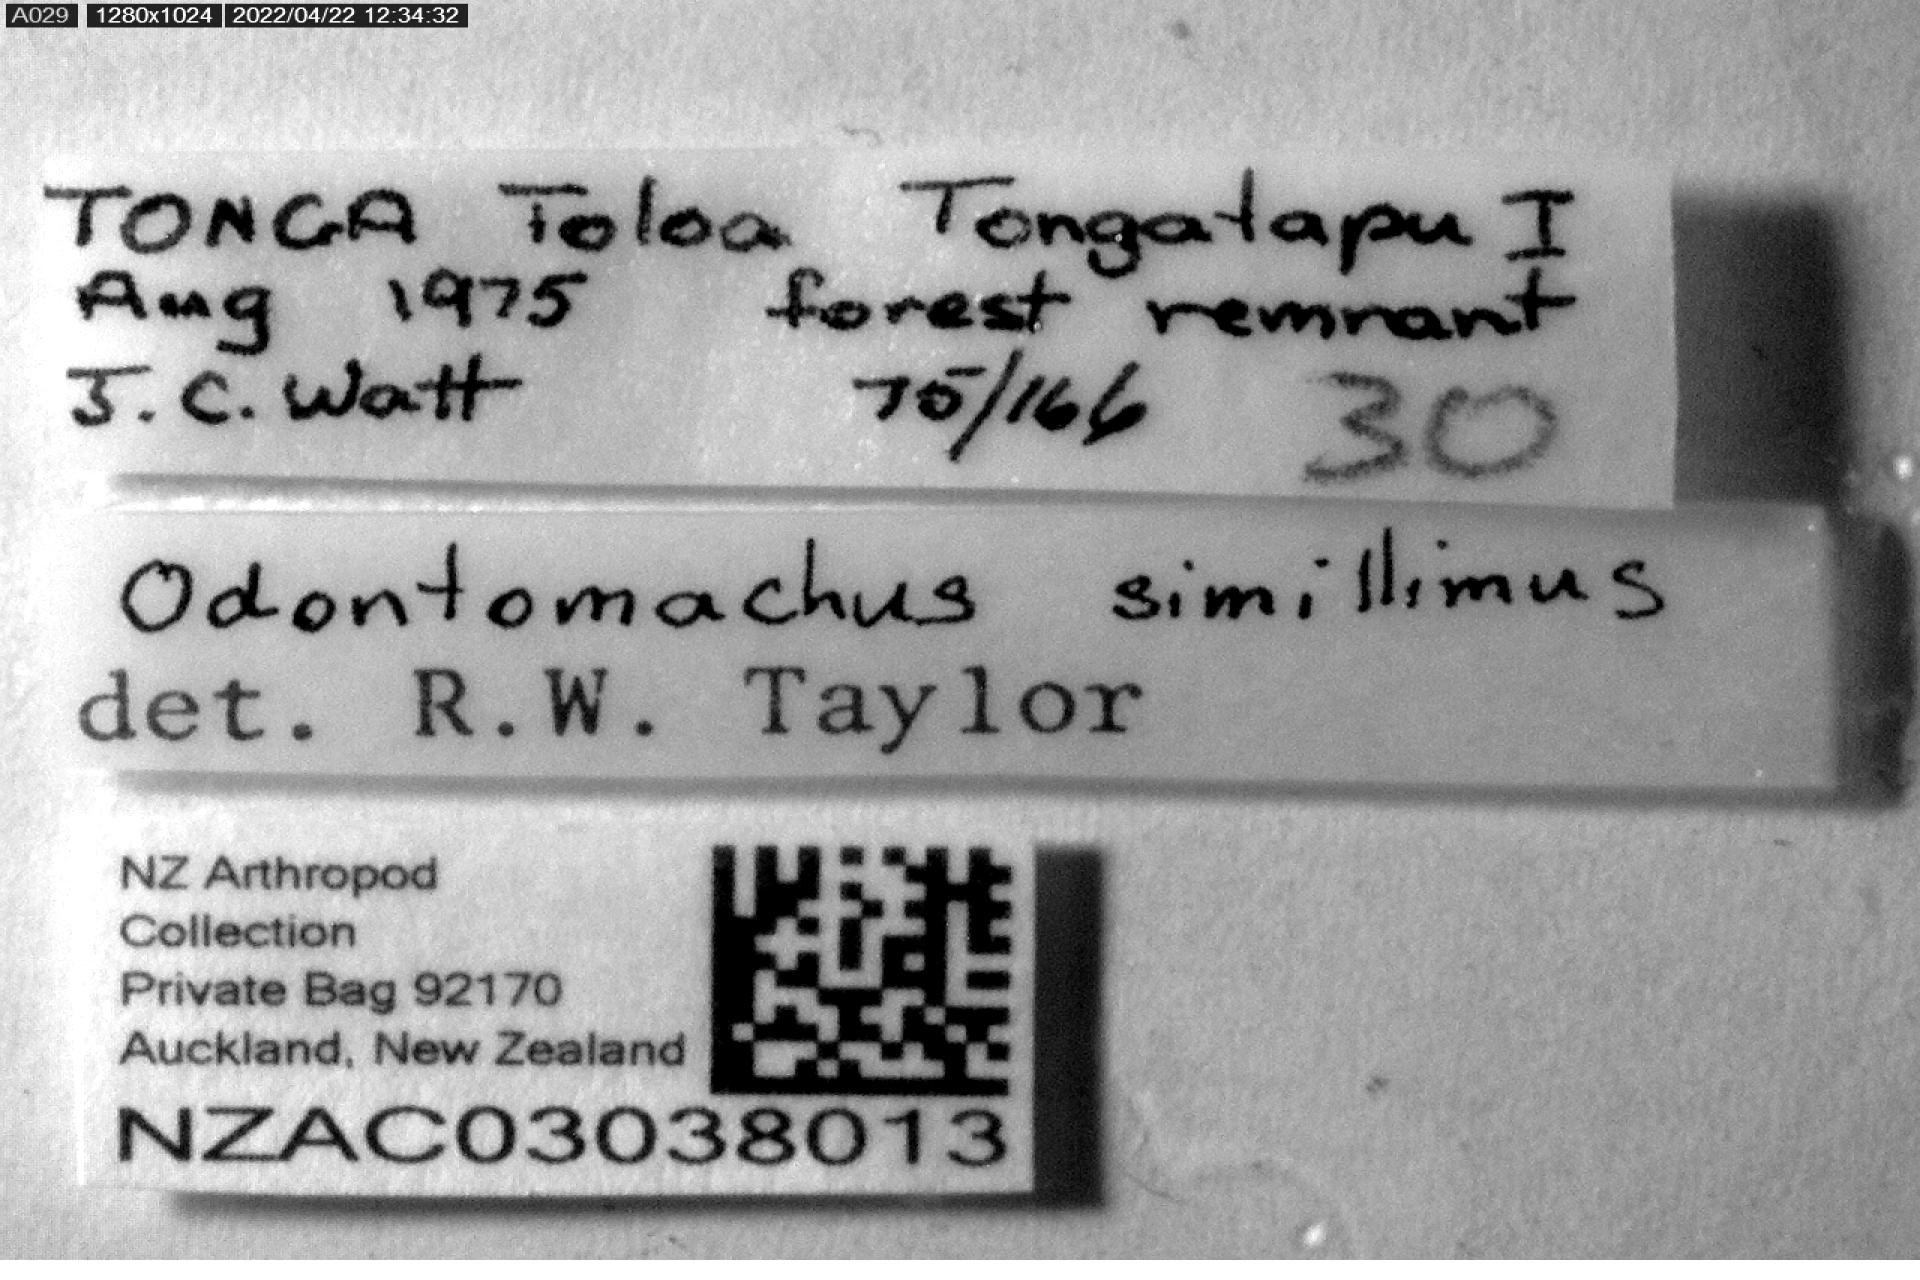 A029 1280x1024 2022/04/22 12:34:32
TONGA Toloa Tongatapu I
Aug 1975 forest remnant
J.C. Watt 75/166 30
Odontomachus simillimus
det. R.W. Taylor
NZ Arthropod
Collection
Private Bag 92170
Auckland, New Zealand
NZAC03038013